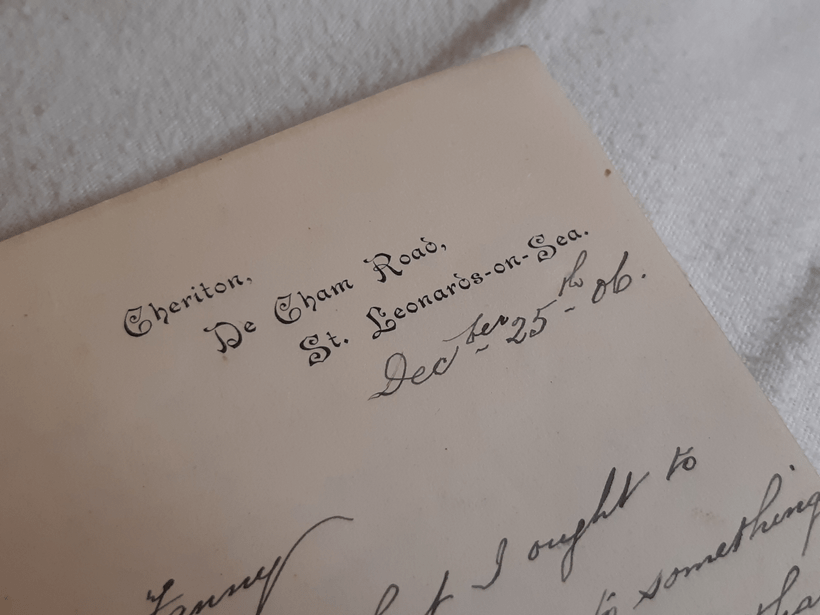 Cheriton,
De Cham Road,
St. Leonards-on-Sea.
Dec^ber 25^th 06.
Fanny
I ought to
to something